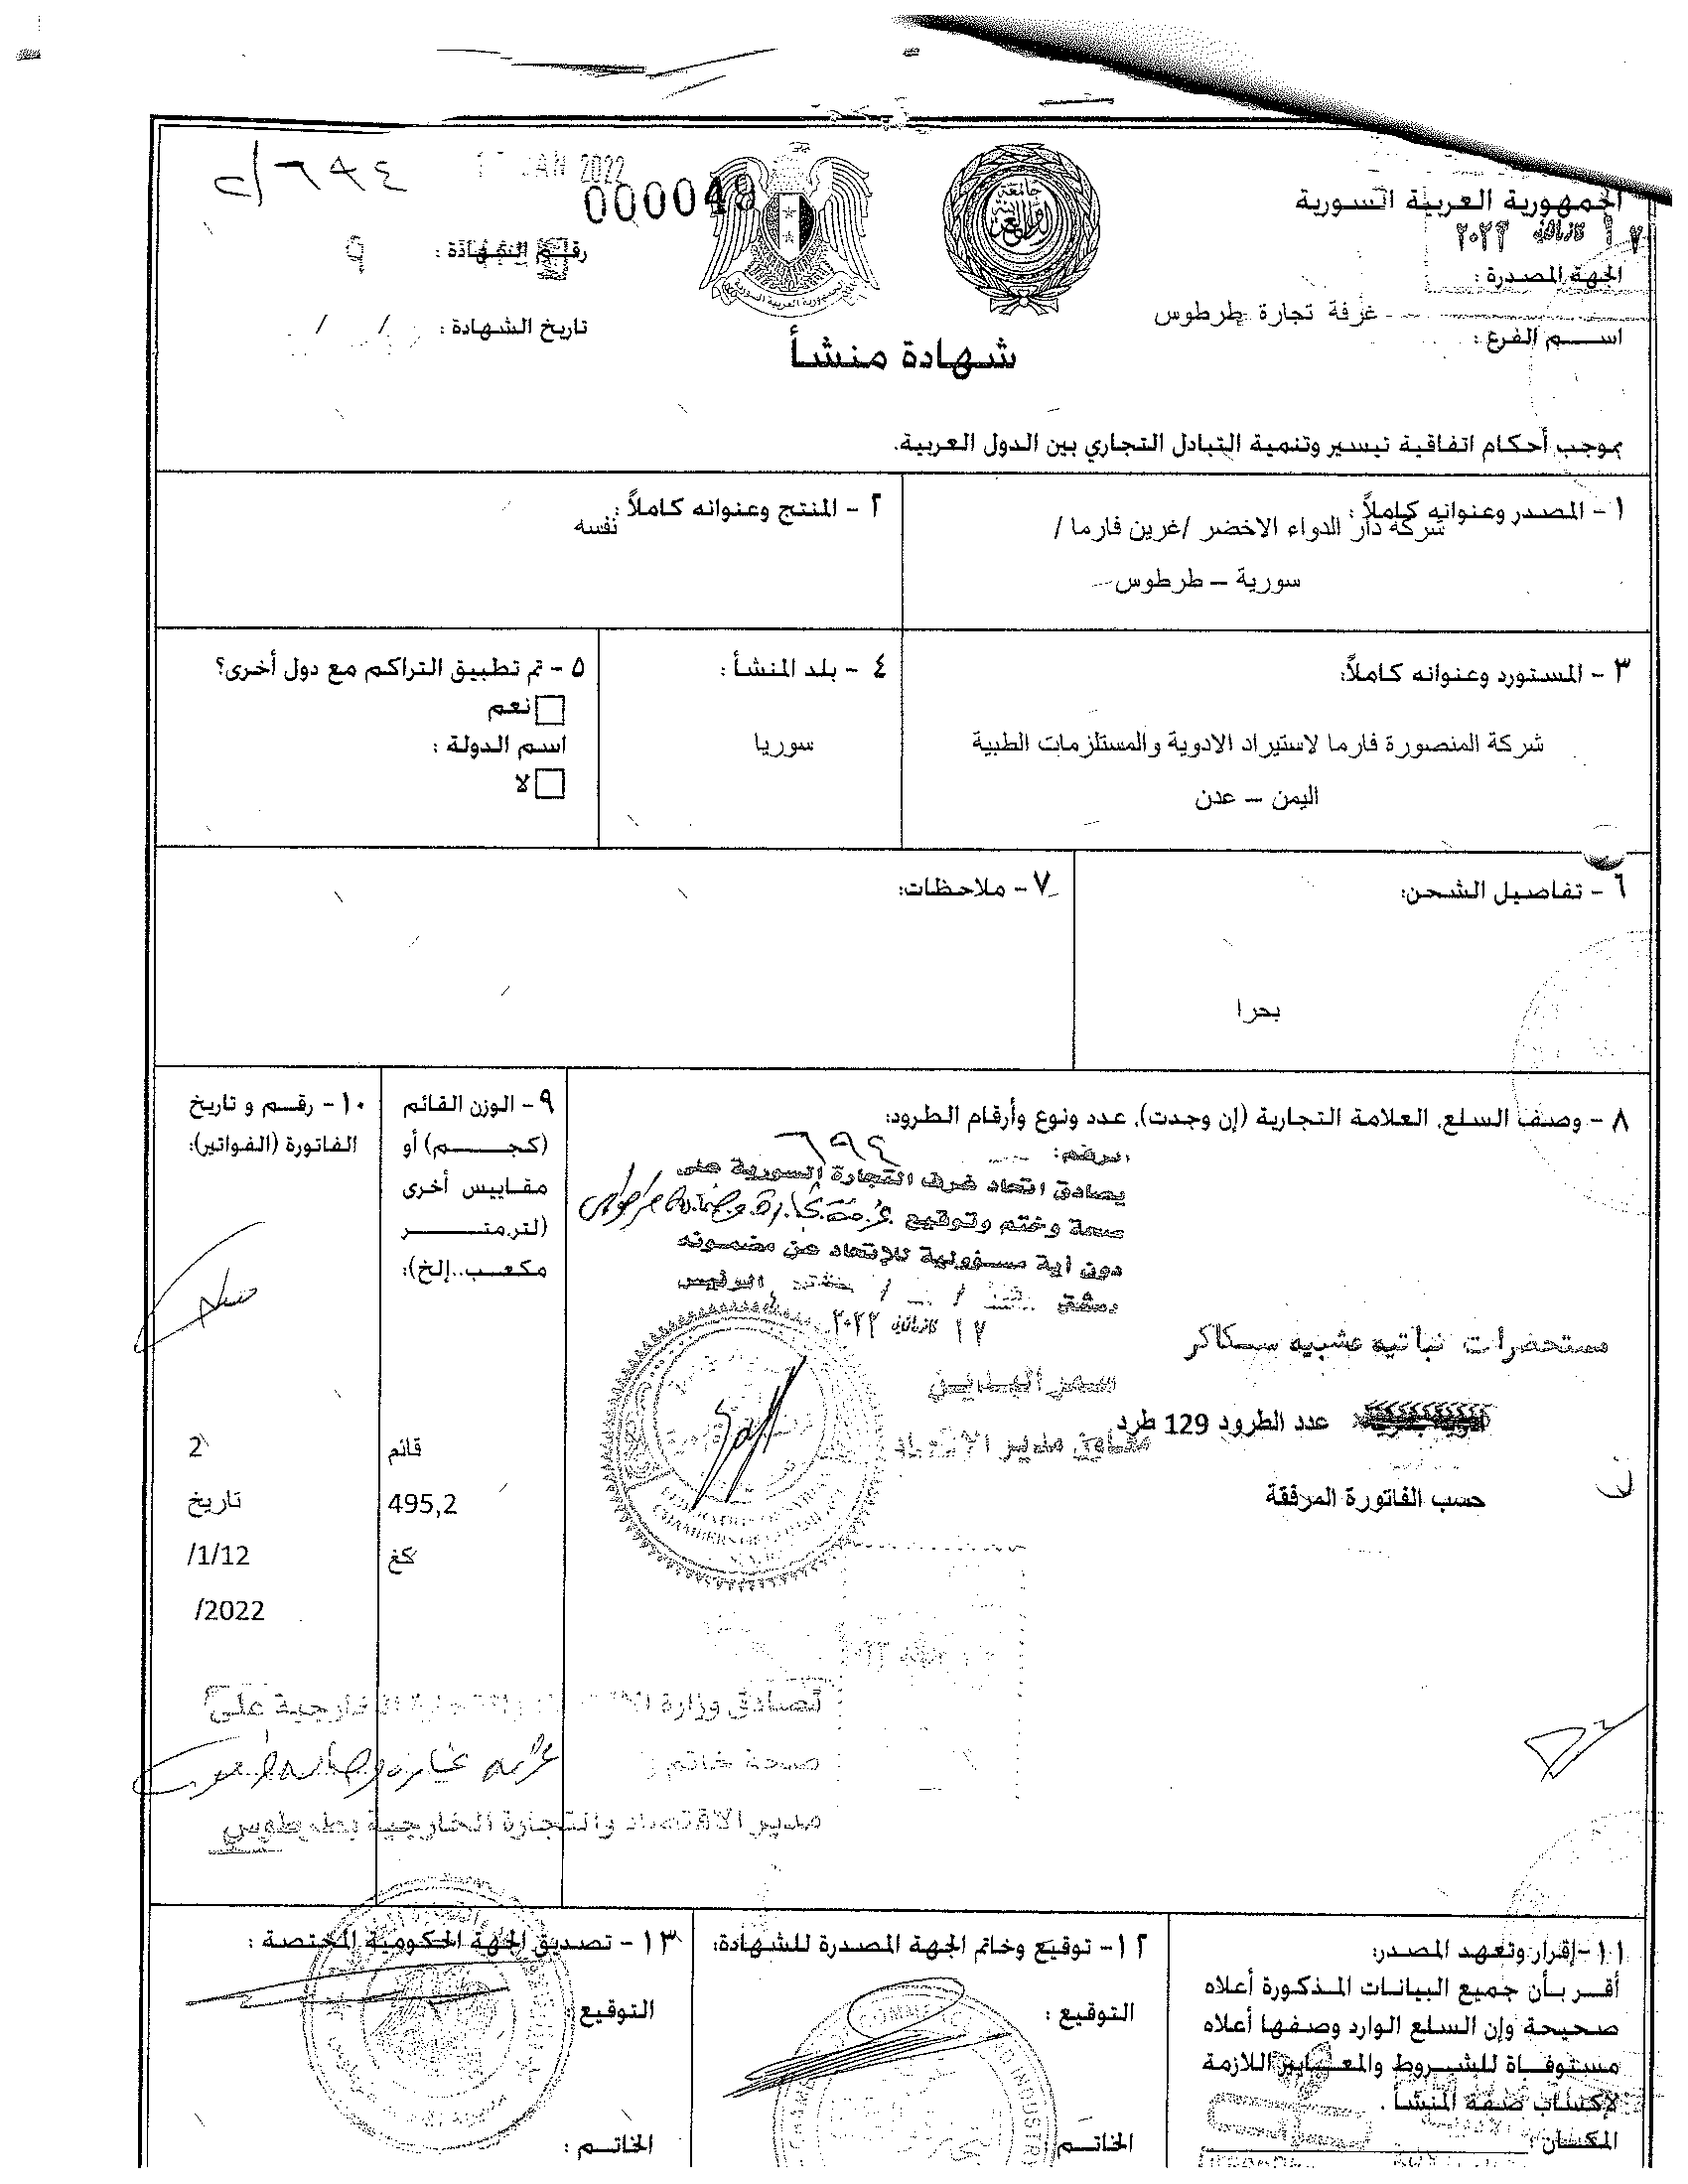 الجمهورية العربية السورية
١٧ كانون الثاني ٢٠٢٢
الجهة المصدرة :
غرفة تجارة طرطوس
اســـم الفرع :
JAN 2022
000049
٦٩٤/ح
رقم الشهادة : ٩
تاريخ الشهادة : / /
شهادة منشأ
بموجب أحكام اتفاقية تيسير وتنمية التبادل التجاري بين الدول العربية.
١ - المصدر وعنوانه كاملاً :
شركة دار الدواء الاخضر /غرين فارما /
سورية – طرطوس
٢ - المنتج وعنوانه كاملاً :
نفسه
٣ - المستورد وعنوانه كاملاً:
شركة المنصورة فارما لاستيراد الادوية والمستلزمات الطبية
اليمن – عدن
٤ - بلد المنشأ :
سوريا
٥ - تم تطبيق التراكم مع دول أخرى؟
نعم
اسم الدولة :
لا
٦ - تفاصيل الشحن:
بحرا
٧ - ملاحظات:
٨ - وصف السلع, العلامة التجارية (إن وجدت), عدد ونوع وأرقام الطرود:
الرقم: ٦٩٤
يصادق اتحاد غرف التجارة السورية على
صحة وختم وتوقيع غرفة تجارة وصناعة طرطوس
دون اية مسؤولية للإتحاد عن مضمونه
دمشق / /
١٧ كانون الثاني ٢٠٢٢
مستحضرات نباتيه عشبيه سكاكر
سمر البدين
عدد الطرود 129 طرد
معاون مدير الاتحاد
حسب الفاتورة المرفقة
CHAMBERS OF COMMERCE
٩ - الوزن القائم
(كجـــم) أو
مقاييس أخرى
(لتر.متـــر
مكعب..إلخ):
قائم
495,2
كغ
١٠ - رقم و تاريخ
الفاتورة (الفواتير):
2
تاريخ
/1/12
/2022
تصادق وزارة الاقتصاد والتجارة الخارجية على
صحة خاتم غرفة تجارة وصناعة طرطوس
مدير الاقتصاد والتجارة الخارجية بطرطوس
١١-إقرار وتعهد المصدر:
أقر بأن جميع البيانات المذكورة أعلاه
صحيحة وإن السلع الوارد وصفها أعلاه
مستوفاة للشروط والمعايير اللازمة
لإكساب صفة المنشأ .
المكان :
١٢- توقيع وخاتم الجهة المصدرة للشهادة:
التوقيع :
الخاتم :
١٣ - تصديق الجهة الحكومية المختصة :
التوقيع :
الخاتم :